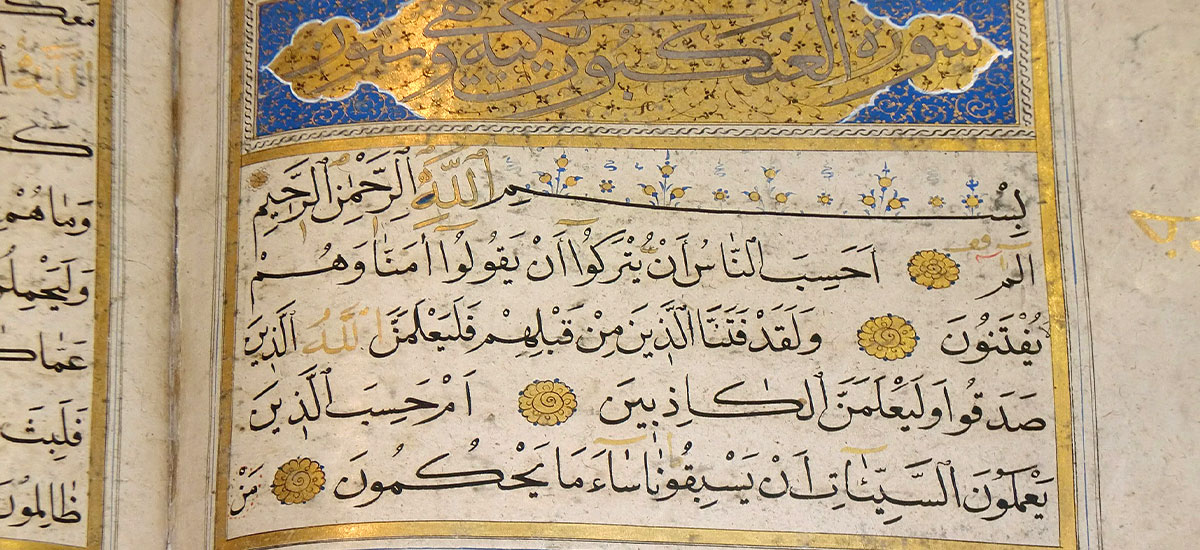 سورة العنكبوت مكية وهى وستون
بِسْمِ اللَّهِ الرَّحْمٰنِ الرَّحِيمِ
الم اَحَسِبَ النَّاسُ أَنْ يُتْرَكُوا أَنْ يَقُولُوا أٰمَنَّا وَهُمْ
يُفْتَنُونَ وَلَقَدْ فَتَنَّا الَّذِينَ مِنْ قَبْلِهِمْ فَلَيَعْلَمَنَّ اللَّهُ الَّذِينَ
صَدَقُوا وَلَيَعْلَمَنَّ الْكَاذِبِينَ اَمْ حَسِبَ الَّذِينَ
يَعْمَلُونَ السَّيِّئَاتِ اَنْ يَسْبِقُونَا سَاءَ مَا يَحْكُمُونَ مَنْ
اللَّه
وَمَا هُمْ
عَمَّا
فَلَبِثَ
ظَالِمُونَ